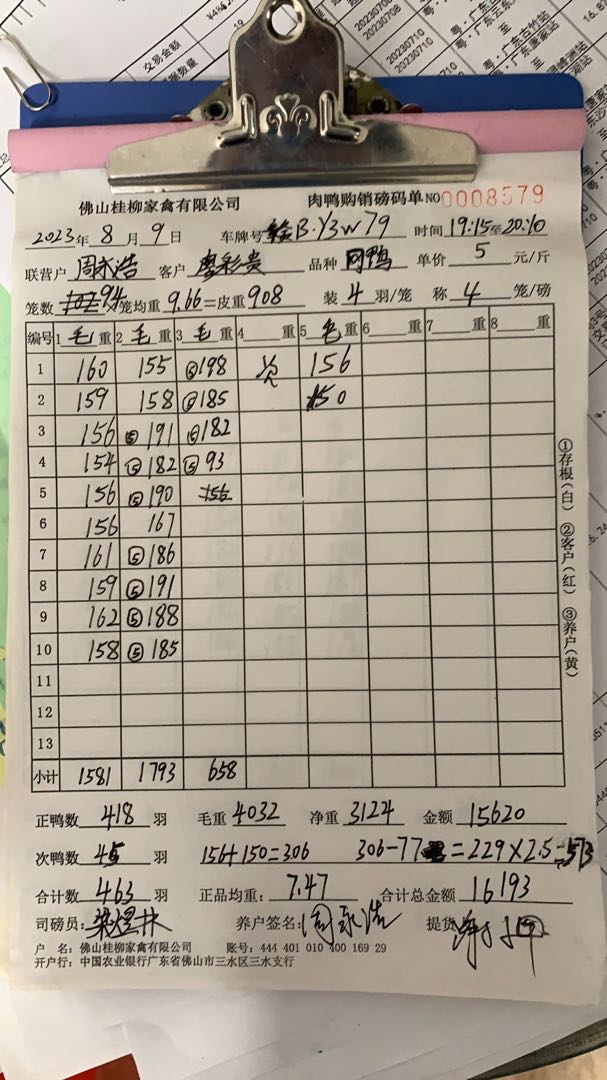 佛山桂柳家禽有限公司 肉鸭购销磅码单 NO 0008579
2023年 8 月 9 日 车牌号 B·Y3W79 时间 19:15至20:10
联营户 周永浩 客户 廖彩贵 品种 网鸭 单价 5 元/斤
笼数 94 × 笼均重 9.66 = 皮重 908 装 4 羽/笼 称 4 笼/磅
编号 1 毛 重 2 毛 重 3 毛 重 4 重 5 毛 重 6 重 7 重 8 重
1 160 155 ⑤198 次 156
2 159 158 ⑤185 150
3 156 ⑤191 ⑤182
4 154 ⑤182 ⑤93
5 156 ⑤190 156
6 156 167
7 161 ⑤186
8 159 ⑤191
9 162 ⑤188
10 158 ⑤185
11
12
13
小计 1581 1793 658
正鸭数 418 羽 毛重 4032 净重 3124 金额 15620
次鸭数 45 羽 156+150=306 306-77=229×2.5=573
合计数 463 羽 正品均重: 7.47 合计总金额 16193
司磅员: 梁煜林 养户签名: 周永浩 提货
户 名: 佛山桂柳家禽有限公司 账号: 444 401 010 400 169 29
开户行: 中国农业银行广东省佛山市三水区三水支行
①存根(白) ②客户(红) ③养户(黄)
交易金额
20230708
20230710
20230710
20230710